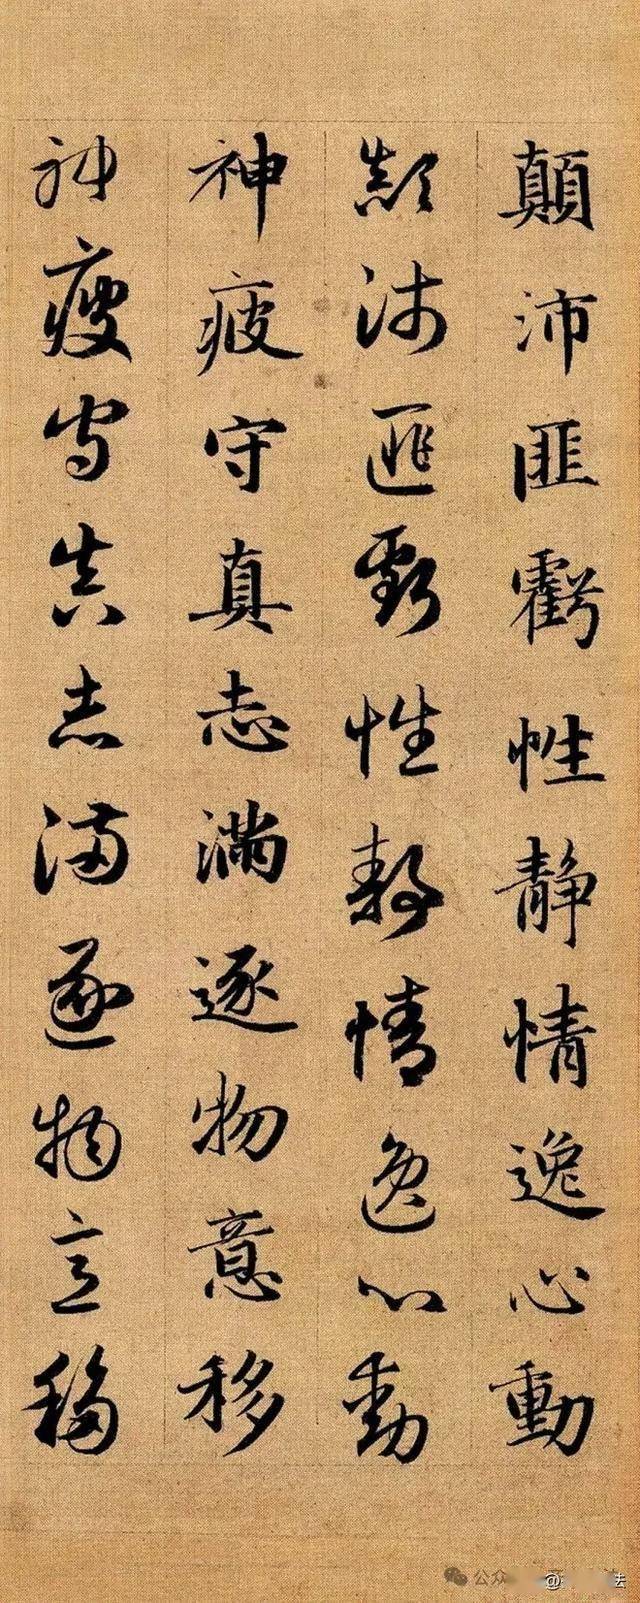 顛沛匪虧性靜情逸心動
顛沛匪虧性靜情逸心動
神疲守真志滿逐物意移
神疲守真志滿逐物意移
公众
@ 法